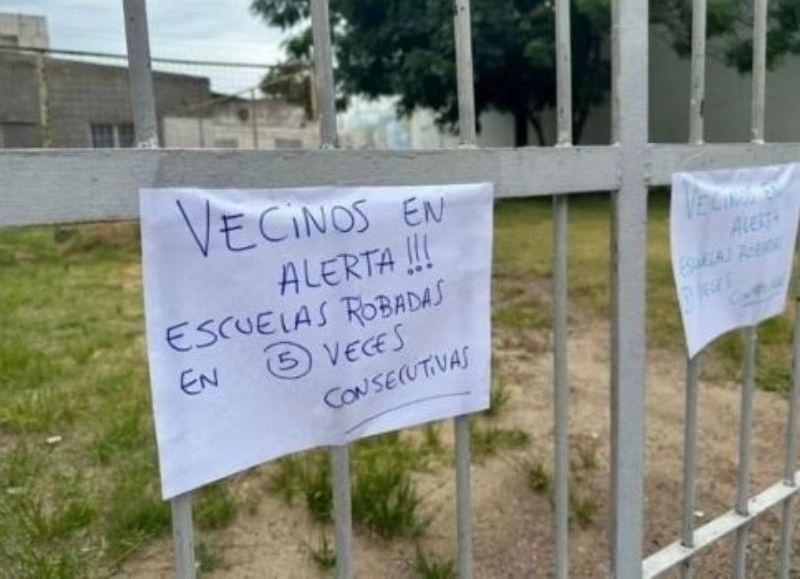 VECINOS EN
ALERTA!!!
ESCUELAS ROBADAS
EN 5 VECES
CONSECUTIVAS
VECINOS EN
ALERTA
ESCUELAS ROBADAS
VECES